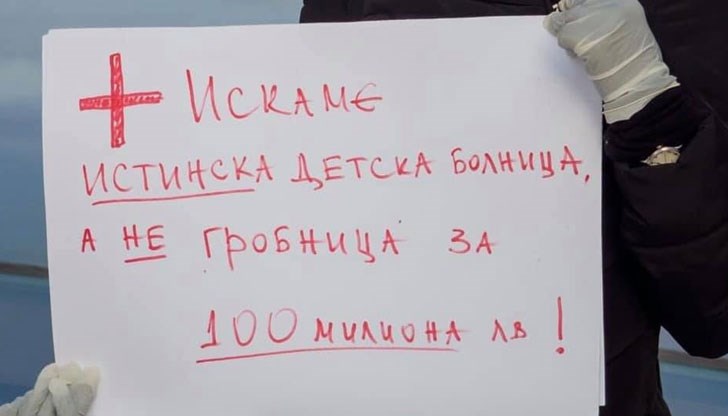 Искаме
истинска детска болница,
а не гробница за
100 милиона лв!